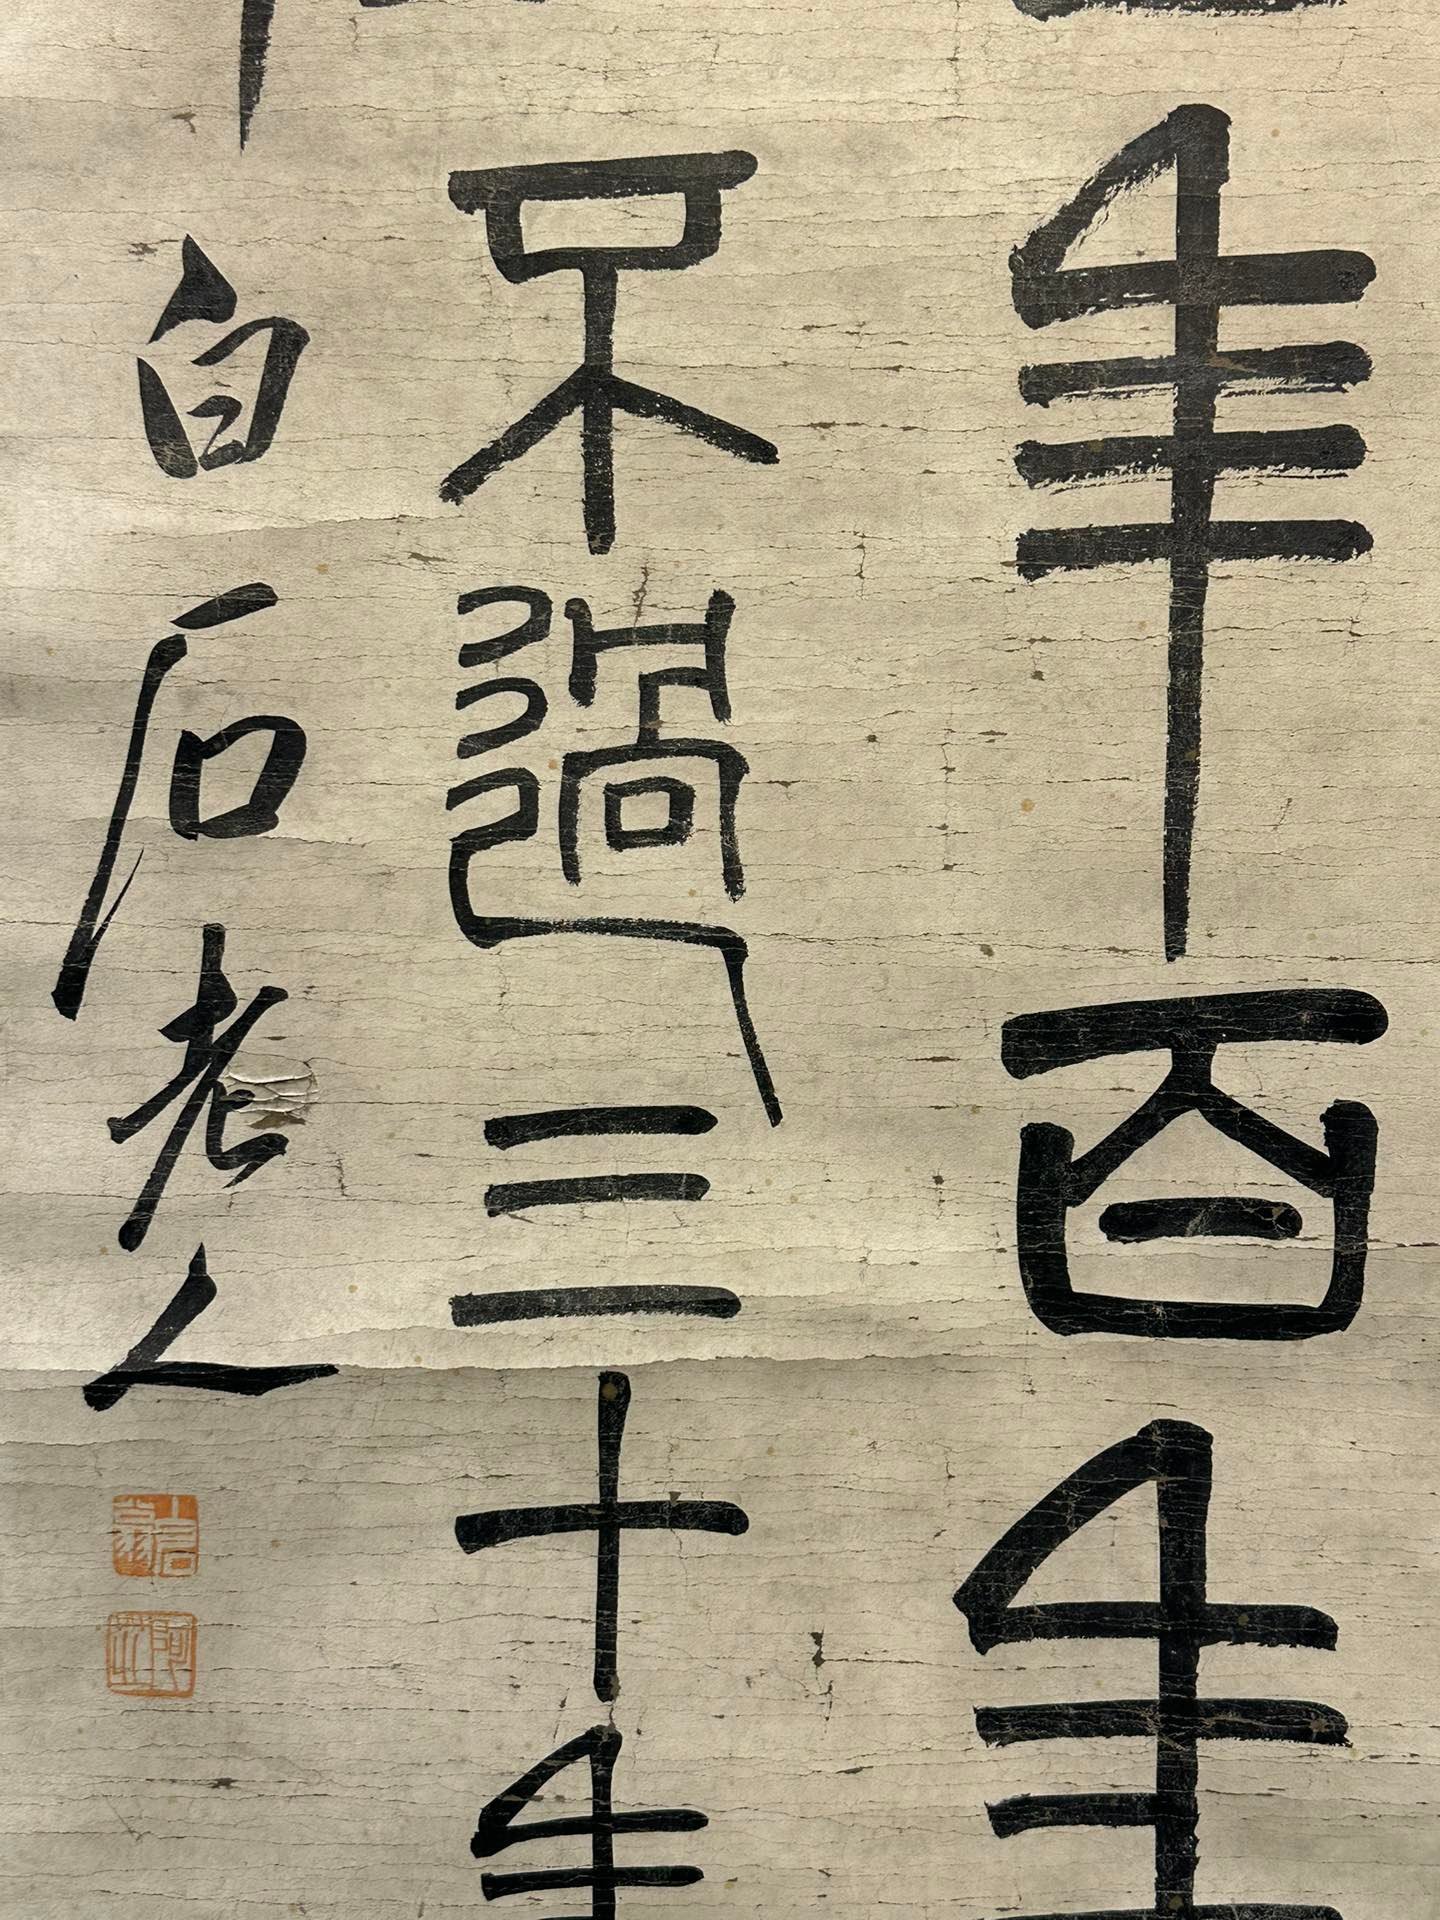 年百年
不過三十年
白石老人
阿芝